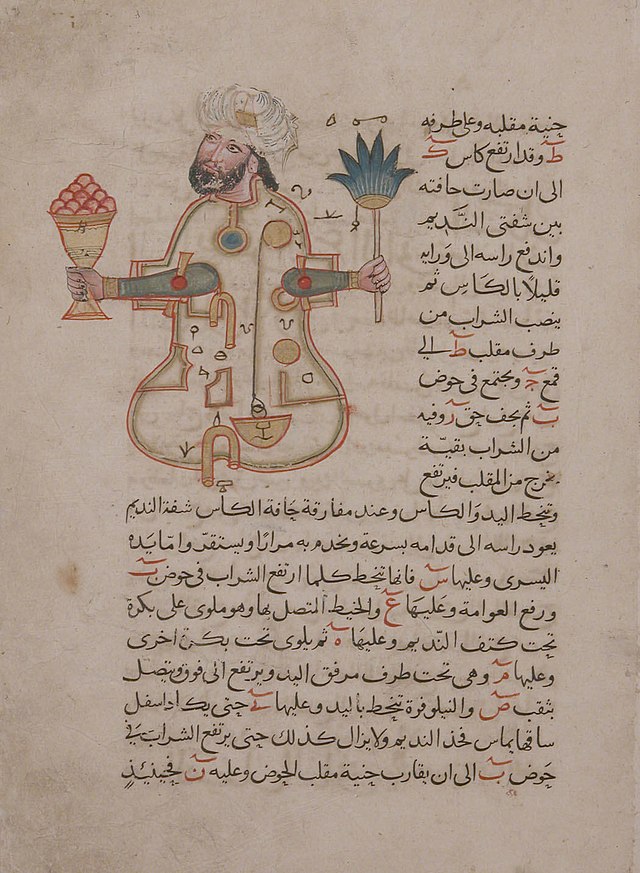 جنية مقلبه وعلى طرفه
ط وقد ارتفع كاس ك
الى ان صارت حافته
بين شفتى النديم
واندفع راسه الى ورايه
قليلا بالكاس ثم
ينصب الشراب من
طرف مقلب ط الى
قمع ج ويجتمع فى حوض
ب ثم يجف حق ر وفيه
من الشراب بقية
يخرج من المقلب فيرتفع
وتنحط اليد والكاس وعند مفارقة حافة الكاس شفة النديم
يعود راسه الى قدامه بسرعة ونخدم به مرارا ويستقر واما يده
اليسرى وعليها س فانها تنحط كلما ارتفع الشراب فى حوض ب
ورفع العوامة وعليها ع والخيط المتصل بها وهو ملوى على بكرة
تحت كتف النديم وعليها ه ثم يلوى تحت بكرة اخرى
وعليها م وهى تحت طرف مرفق اليد ويرتفع الى فوق ويتصل
بثقب ص والنيلوفرة تنحط باليد وعليها ف حتى يكاد اسفل
ساقها يماس فخذ النديم ولا يزال كذلك حتى يرتفع الشراب فى
حوض ب الى ان يقارب جنية مقلب الحوض وعليه ن فحينيذ